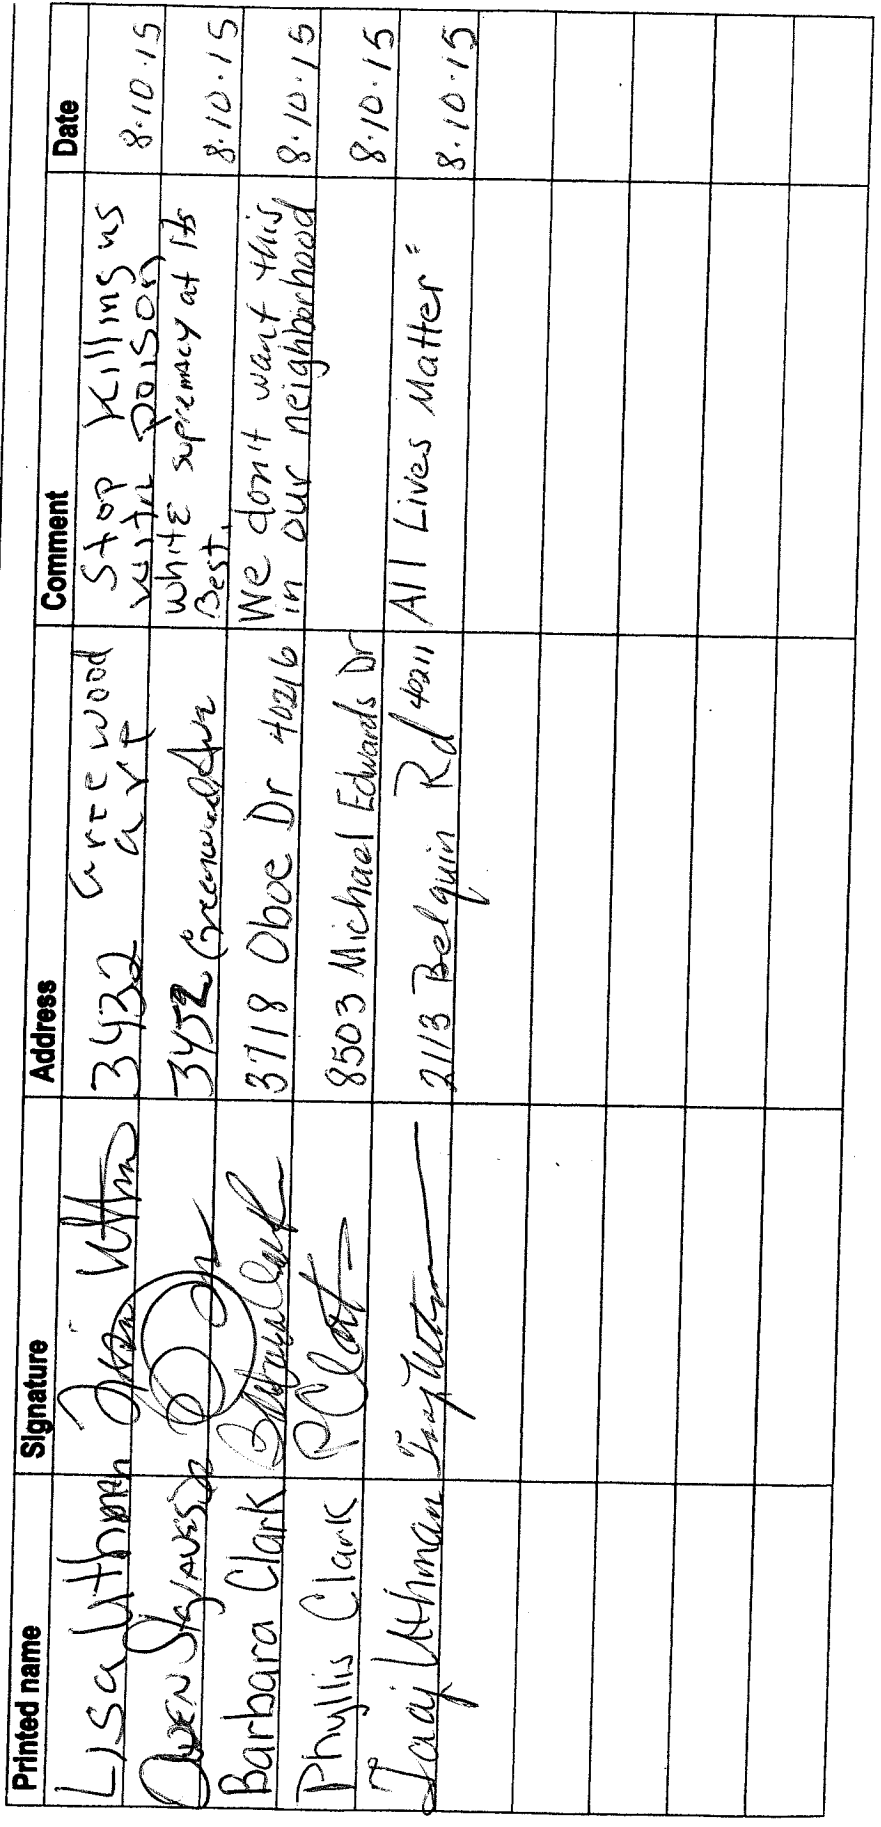 Printed name Signature Address Comment Date
Lisa Uthman 3432 Greewood ave Stop Killing us with poison 8.10.15
Owen 3452 Greenwood Ave White supremacy at Its Best. 8.10.15
Barbara Clark Barbara Clark 3718 Oboe Dr 40216 We don't want this in our neighborhood 8.10.15
Phyllis Clark P Clark 8503 Michael Edwards Dr 8.10.15
Taaj Uthman Taaj Uthman 2113 Belquin Rd 40211 All Lives Matter" 8.10.15